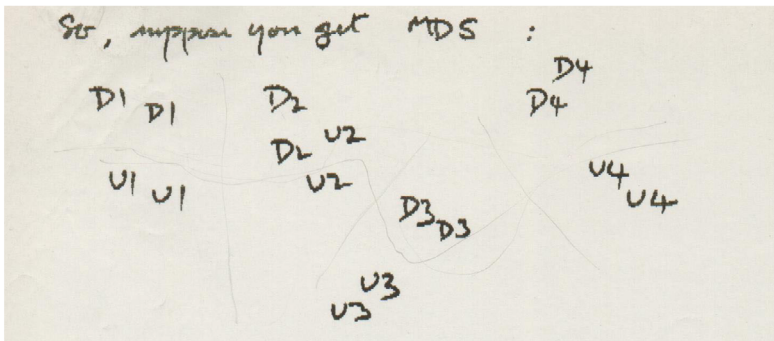 So, suppose you get MDS :
D4
D1 D1 D2 D4
D2 U2
U1 U1 U2 U4
U4
D3 D3
U3
U3